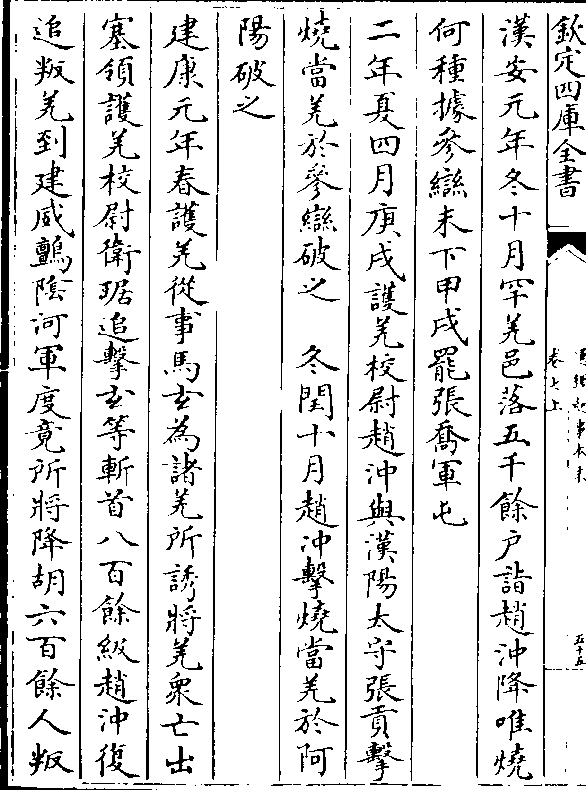 欽定四庫全書
卷七上
五十五
漢安元年冬十月罕羌邑落五千餘户詣趙沖降唯燒
何種據參䜌未下甲戌罷張喬軍屯
二年夏四月庚戌護羌校尉趙沖與漢陽太守張貢擊
燒當羌於參䜌破之　冬閏十月趙沖擊燒當羌於阿
陽破之
建康元年春護羌從事馬玄為諸羌所誘將羌衆亡出
塞領護羌校尉衛琚追擊玄等斬首八百餘級趙沖復
追叛羌到建威鸇陰河軍度竟所將降胡六百餘人叛